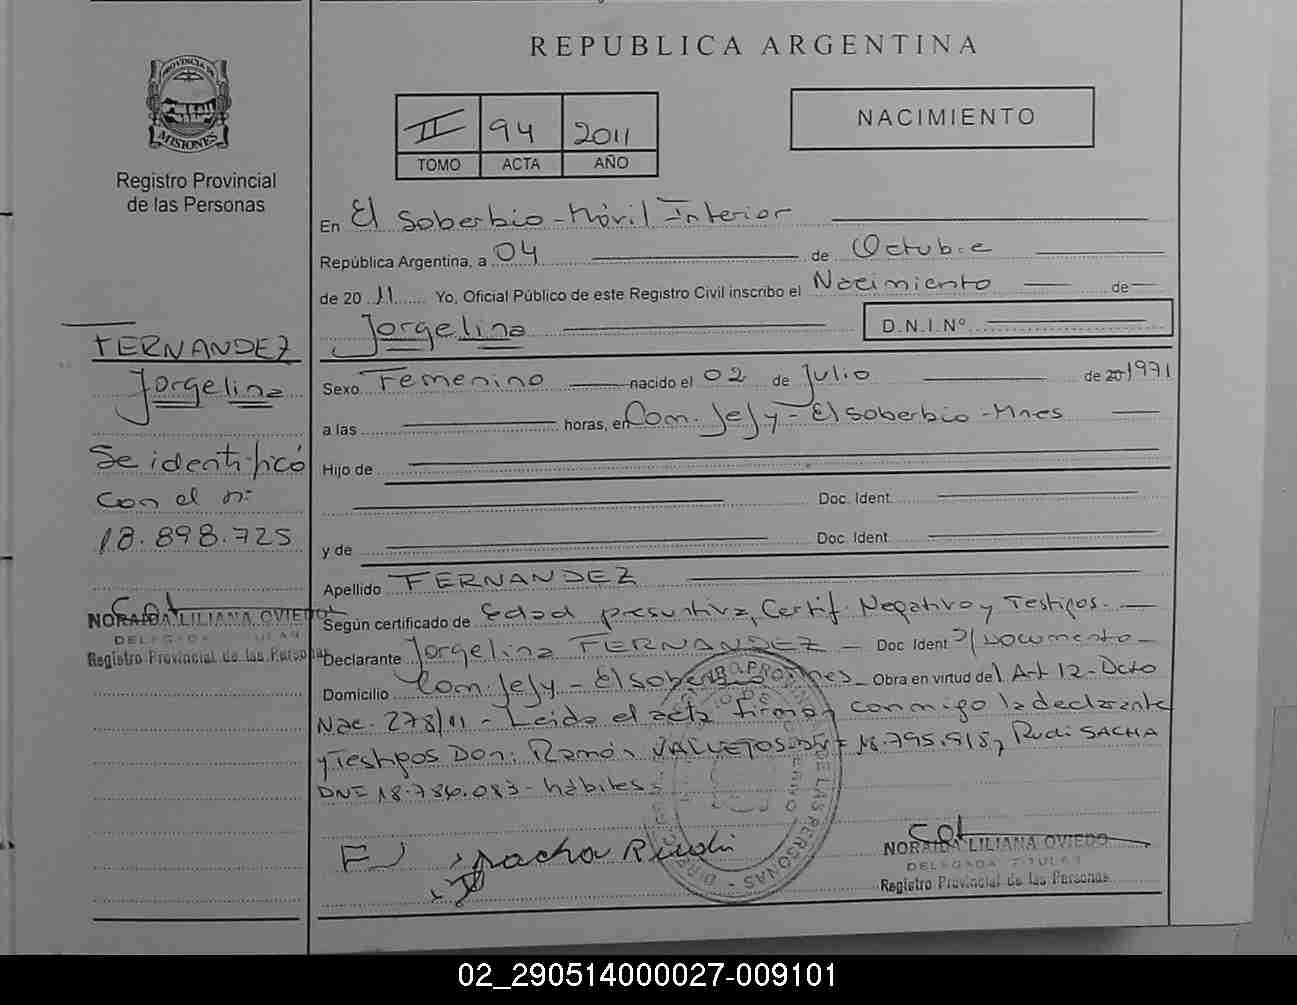 REPUBLICA ARGENTINA
PROVINCIA DE
MISIONES
Registro Provincial
de las Personas
II 94 2011
TOMO ACTA AÑO
NACIMIENTO
En El Soberbio - Móvil Interior
República Argentina, a 04 de Octubre
de 20 11 Yo, Oficial Público de este Registro Civil inscribo el Nacimiento de
Jorgelina D.N.I.Nº
FERNANDEZ
Jorgelina
Se identificó
con el n:
18.898.725
NORAIDA LILIANA OVIEDO
DELEGADA TITULAR
Registro Provincial de las Personas
Sexo Femenino nacido el 02 de Julio de 20 1971
a las horas, en Com. Jejy - El Soberbio - Mnes
Hijo de
Doc. Ident.
y de Doc. Ident.
Apellido FERNANDEZ
Según certificado de Edad presuntiva, Certif. Negativo y Testigos.
Declarante Jorgelina FERNANDEZ - Doc Ident S/Documento -
Domicilio Com. Jejy - El Soberbio Mnes - Obra en virtud del Art 12 - Dcto
Nac. 278/11 - Leida el acta firman conmigo la declarante
y Testigos Don: Ramón VALLEJOS 18.795.818, Rudi SACHA
DNI 18.786.083 - hábiles.
FJ Sacha Rudi
NORAIDA LILIANA OVIEDO
DELEGADA TITULAR
Registro Provincial de las Personas
02_290514000027-009101